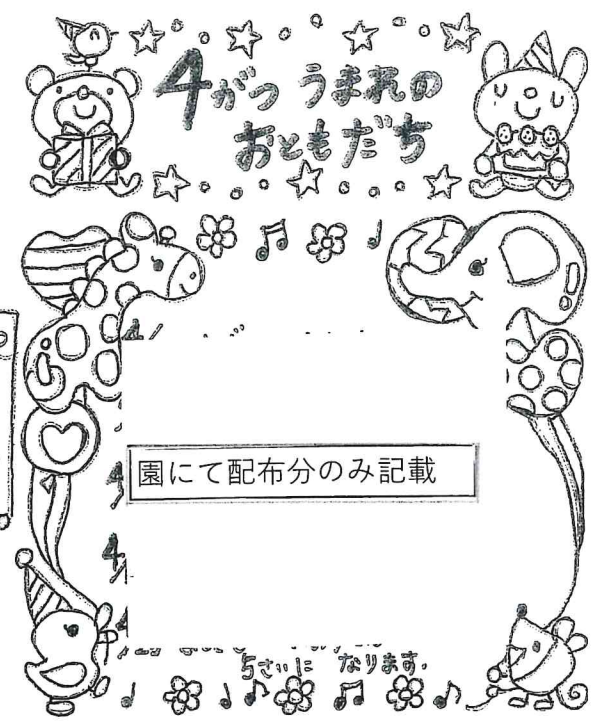 4がつ うまれの
おともだち
園にて配布分のみ記載
5さいに なります。